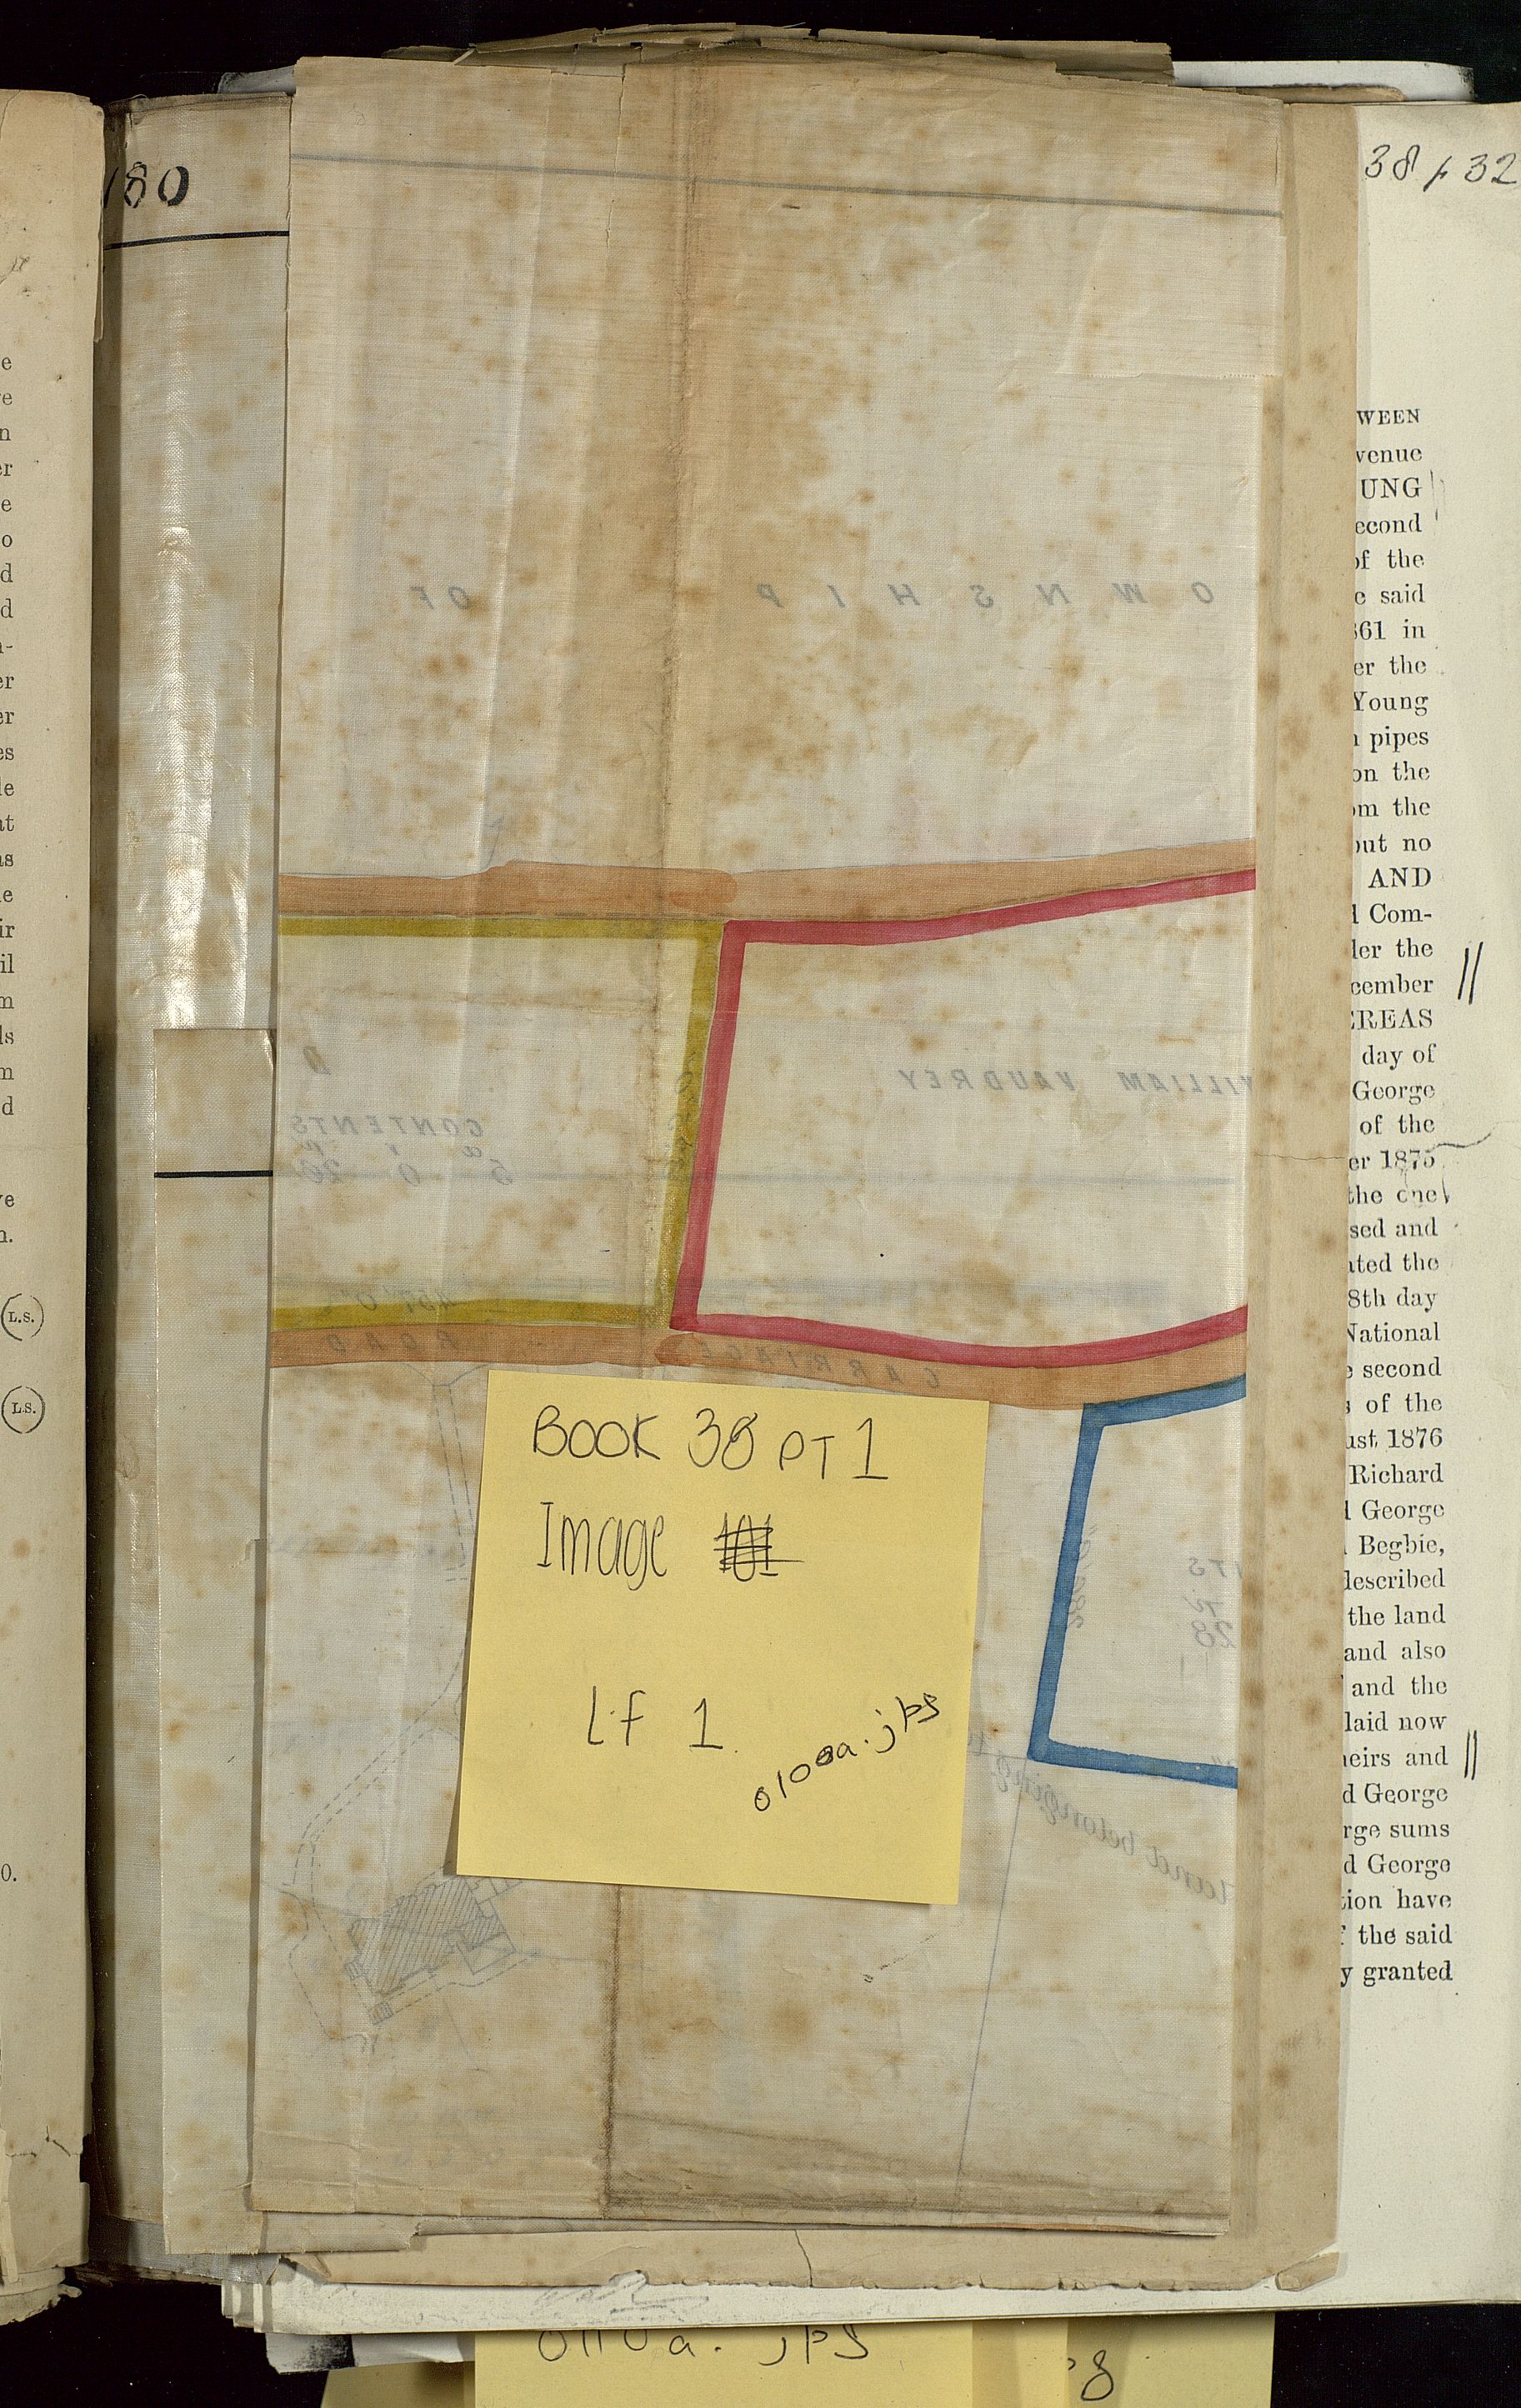 180
38 / 32
e
re
n
er
e
o
d
d
a-
er
er
es
le
at
as
le
ir
il
m
ls
m
d
ve
n.
L.S.
L.S.
0.
OWNSHIP OF
WILLIAM VAUDREY
CONTENTS
a r p
5 0 20
CARRIAGE ROAD
BOOK 38 PT 1
Image
Lf 1
0100a.jpg
28
Land belonging
WEEN
venue
UNG
econd
of the
e said
361 in
er the
Young
n pipes
on the
om the
but no
AND
d Com-
der the
cember
EREAS
day of
George
of the
er 1875
the one
sed and
ated the
8th day
National
e second
s of the
ust 1876
Richard
d George
Begbie,
described
the land
and also
and the
laid now
heirs and
d George
rge sums
d George
tion have
f the said
y granted
0110a.jpg